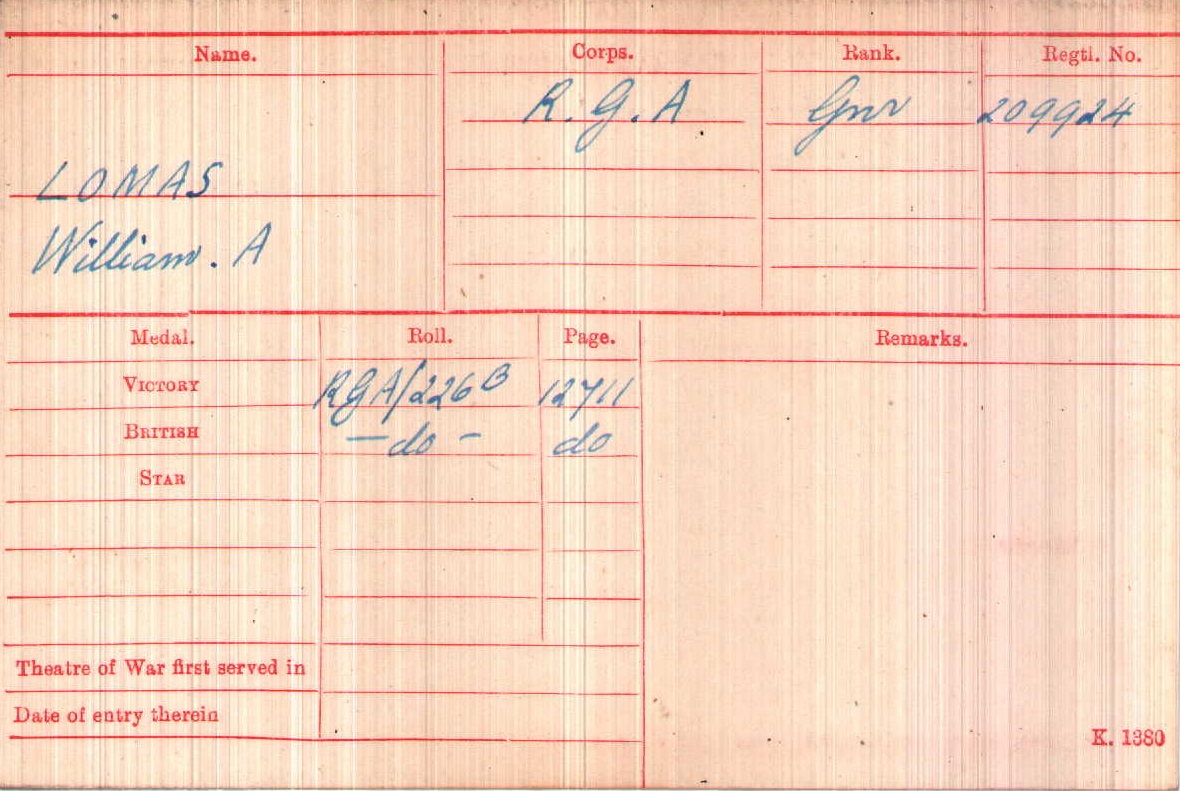 Name. Corps. Rank. Regtl. No.
R. G. A Gnr 209924
LOMAS
William. A
Medal. Roll. Page. Remarks.
VICTORY RGA/226B 12711
BRITISH - do - do
STAR
Theatre of War first served in
Date of entry therein
K. 1380